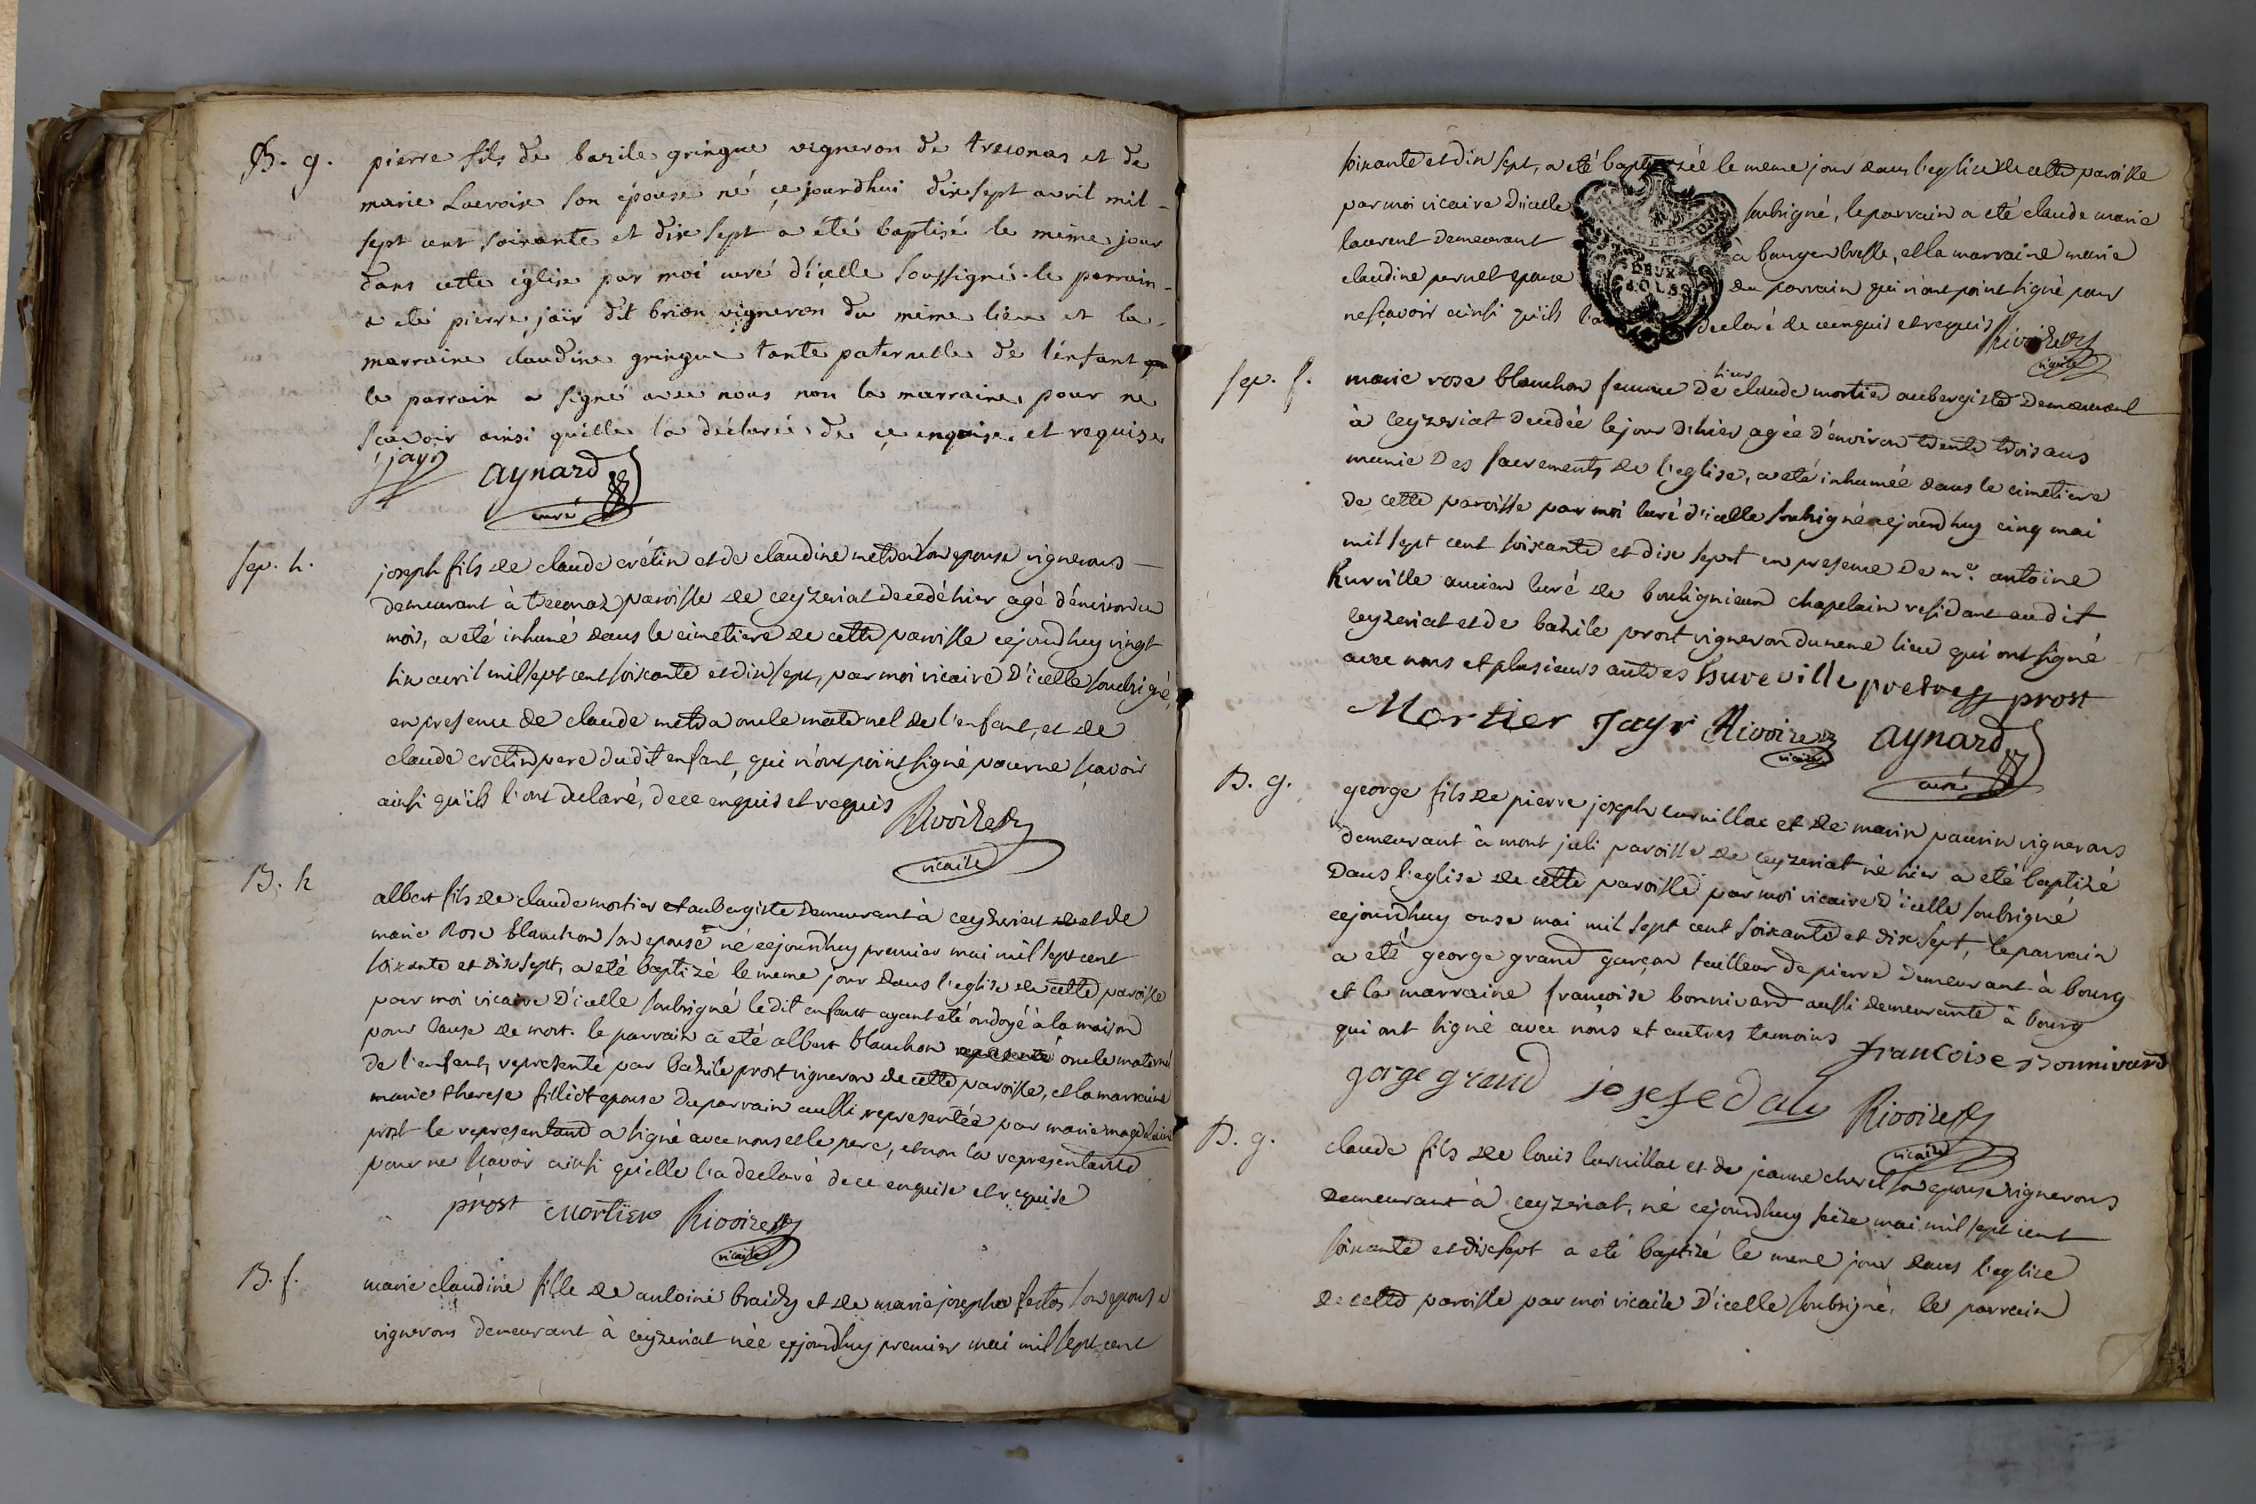 B. g. pierre fils de bazile gringue vigneron de treconas et de
marie Lacroix son épouse né ce jourdhui dixsept avril mil
sept cent soixante et dix sept a été baptisé le même jour
dans cette église par moi curé d'icelle soussigné. le parrain
a été pierre jaÿr dit brion vigneron du même lieu et la
marraine claudine gringue tante paternelle de l'enfant
le parrain a signé avec nous non la marraine pour ne
scavoir ainsi qu'elle l'a déclaré de ce enquise et requise
jayr aynard
curé
sep. h. joseph fils de claude crétin et de claudine metra son epouse vignerons
demeurant à treconaz paroisse de ceyzeriat decedé hier agé d'environ un
mois, a eté inhumé dans le cimetiere de cette paroisse cejourdhuy vingt
six avril mil sept cent soixante et dix sept, par moi vicaire d'icelle soubsigné,
en presence de claude metra oncle maternel de l'enfant, et de
claude cretin pere dudit enfant, qui n'ont point signé pour ne scavoir
ainsi qu'ils l'ont declaré, de ce enquis et requis
Rivoire
vicaire
B. h albert fils de claude mortier et aubergiste demeurant à ceyzeriat et de
marie Rose blanchon son epouse né cejourdhuy premier mai mil sept cent
soixante et dix sept, a eté baptizé le meme jour dans l'eglise de cette paroisse
par moi vicaire d'icelle soubsigné ledit enfant ayant eté ondoyé à la maison
pour cause de mort. le parrain a eté albert blanchon oncle maternel
de l'enfant, representé par bazile prost vigneron de cette paroisse, et la marraine
marie therese filliot epouse du parrain aussi representée par marie magdelaine
prost le representant a signé avec nous et le pere, et non la representante
pour ne scavoir ainsi qu'elle l'a declaré de ce enquise et requise
prost Mortier Rivoire
vicaire
B. f. marie claudine fille de antoine braidy et de marie josephe son epouse
vignerons demeurant à ceyzeriat née cejourdhuy premier mai mil sept cent
soixante et dix sept, a eté baptizée le meme jour dans l'eglise de cette paroisse
par moi vicaire d'icelle soubsigné, le parrain a eté claude marie
laurent demeurant à bourg en bresse, et la marraine marie
claudine pernet epouse du parrain qui n'ont point signé pour
ne scavoir ainsi qu'ils l'ont declaré de ce enquis et requis Rivoire
vicaire
DEUX
SOLS
sep. f. marie rose blanchon femme de sieur claude mortier aubergiste demeurant
à ceyzeriat decedée le jour d'hier agée d'environ trente trois ans
munie des sacrements de l'eglise, a eté inhumée dans le cimetiere
de cette paroisse par moi curé d'icelle soubsigné cejourdhuy cinq mai
mil sept cent soixante et dix sept en presence de mre. antoine
hureville ancien curé de bouligneux chapelain residant audit
ceyzeriat et de bazile prost vigneron du meme lieu qui ont signé
avec nous et plusieurs autres hureville pretre prost
Mortier Jayr Rivoire aynard
vicaire curé
B. g. george fils de pierre joseph curvillac et de marie paurin vignerons
demeurant à mont juli paroisse de ceyzeriat né hier a eté baptizé
dans l'eglise de cette paroisse par moi vicaire d'icelle soubsigné
cejourdhuy onze mai mil sept cent soixante et dix sept, le parrain
a eté george grand garçon tailleur de pierre demeurant à bourg
et la marraine francoise bonnivard aussi demeurante à bourg
qui ont signé avec nôus et autres temoins francoise Bonnivard
gorge grand josefe daly Rivoire
vicaire
B. g. claude fils de louis curvillac et de jeanne cheret son epouse vignerons
demeurant à ceyzeriat, né cejourdhuy seize mai mil sept cent
soixante et dix sept a eté baptizé le meme jour dans l'eglise
de cette paroisse par moi vicaire d'icelle soubsigné, le parrain